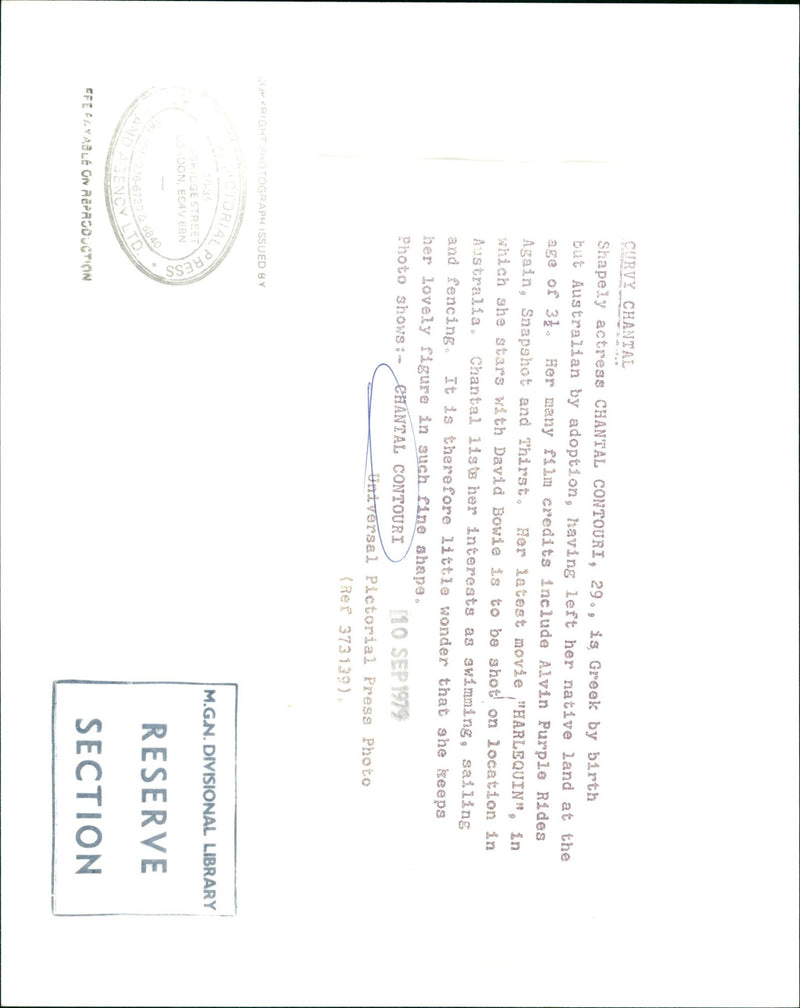 CURVY CHANTAL
Shapely actress CHANTAL CONTOURI, 29., is Greek by birth
but Australian by adoption, having left her native land at the
age of 3½. Her many film credits include Alvin Purple Rides
Again, Snapshot and Thirst. Her latest movie "HARLEQUIN", in
which she stars with David Bowie is to be shot on location in
Australia. Chantal lists her interests as swimming, sailing
and fencing. It is therefore little wonder that she keeps
her lovely figure in such fine shape.
Photo shows:- CHANTAL CONTOURI
10 SEP 1979
Universal Pictorial Press Photo
(Ref 373139).
PHOTOGRAPH ISSUED BY
PICTORIAL PRESS
AND AGENCY LTD.
BRIDGE STREET
LONDON, EC4V 6BN
FEE PAYABLE ON REPRODUCTION
M.G.N. DIVISIONAL LIBRARY
RESERVE
SECTION